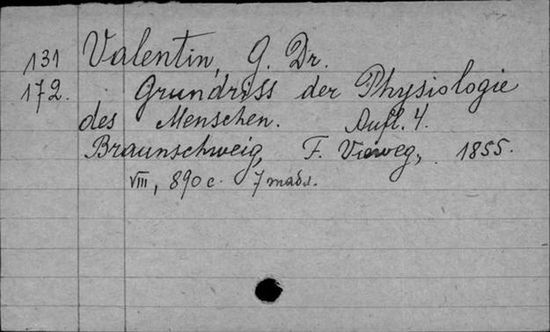 131 Valentin, G. Dr.
172. Grundriss der Physiologie
des Menschen. Aufl. 4.
Braunschweig, F. Vieweg, 1855.
VIII, 890 c.